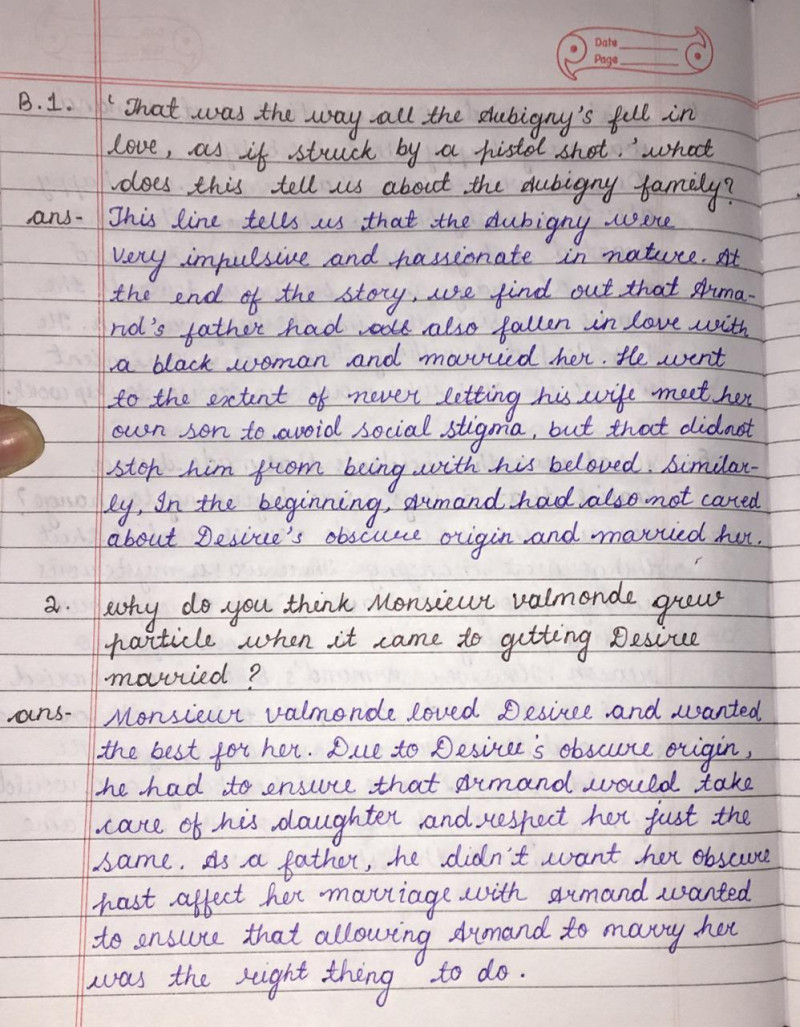 Date
Page
B.1. 'That was the way all the Aubigny's fell in
love, as if struck by a pistol shot.' what
does this tell us about the Aubigny family?
ans- This line tells us that the Aubigny were
very impulsive and passionate in nature. At
the end of the story, we find out that Arma-
nd's father had also fallen in love with
a black woman and married her. He went
to the extent of never letting his wife meet her
own son to avoid social stigma, but that did not
stop him from being with his beloved. Similar-
ly, In the beginning, Armand had also not cared
about Desiree's obscure origin and married her.
2. why do you think Monsieur Valmonde grew
particle when it came to getting Desiree
married?
ans- Monsieur Valmonde loved Desiree and wanted
the best for her. Due to Desiree's obscure origin,
he had to ensure that Armand would take
care of his daughter and respect her just the
same. As a father, he didn't want her obscure
past affect her marriage with Armand wanted
to ensure that allowing Armand to marry her
was the right thing to do.